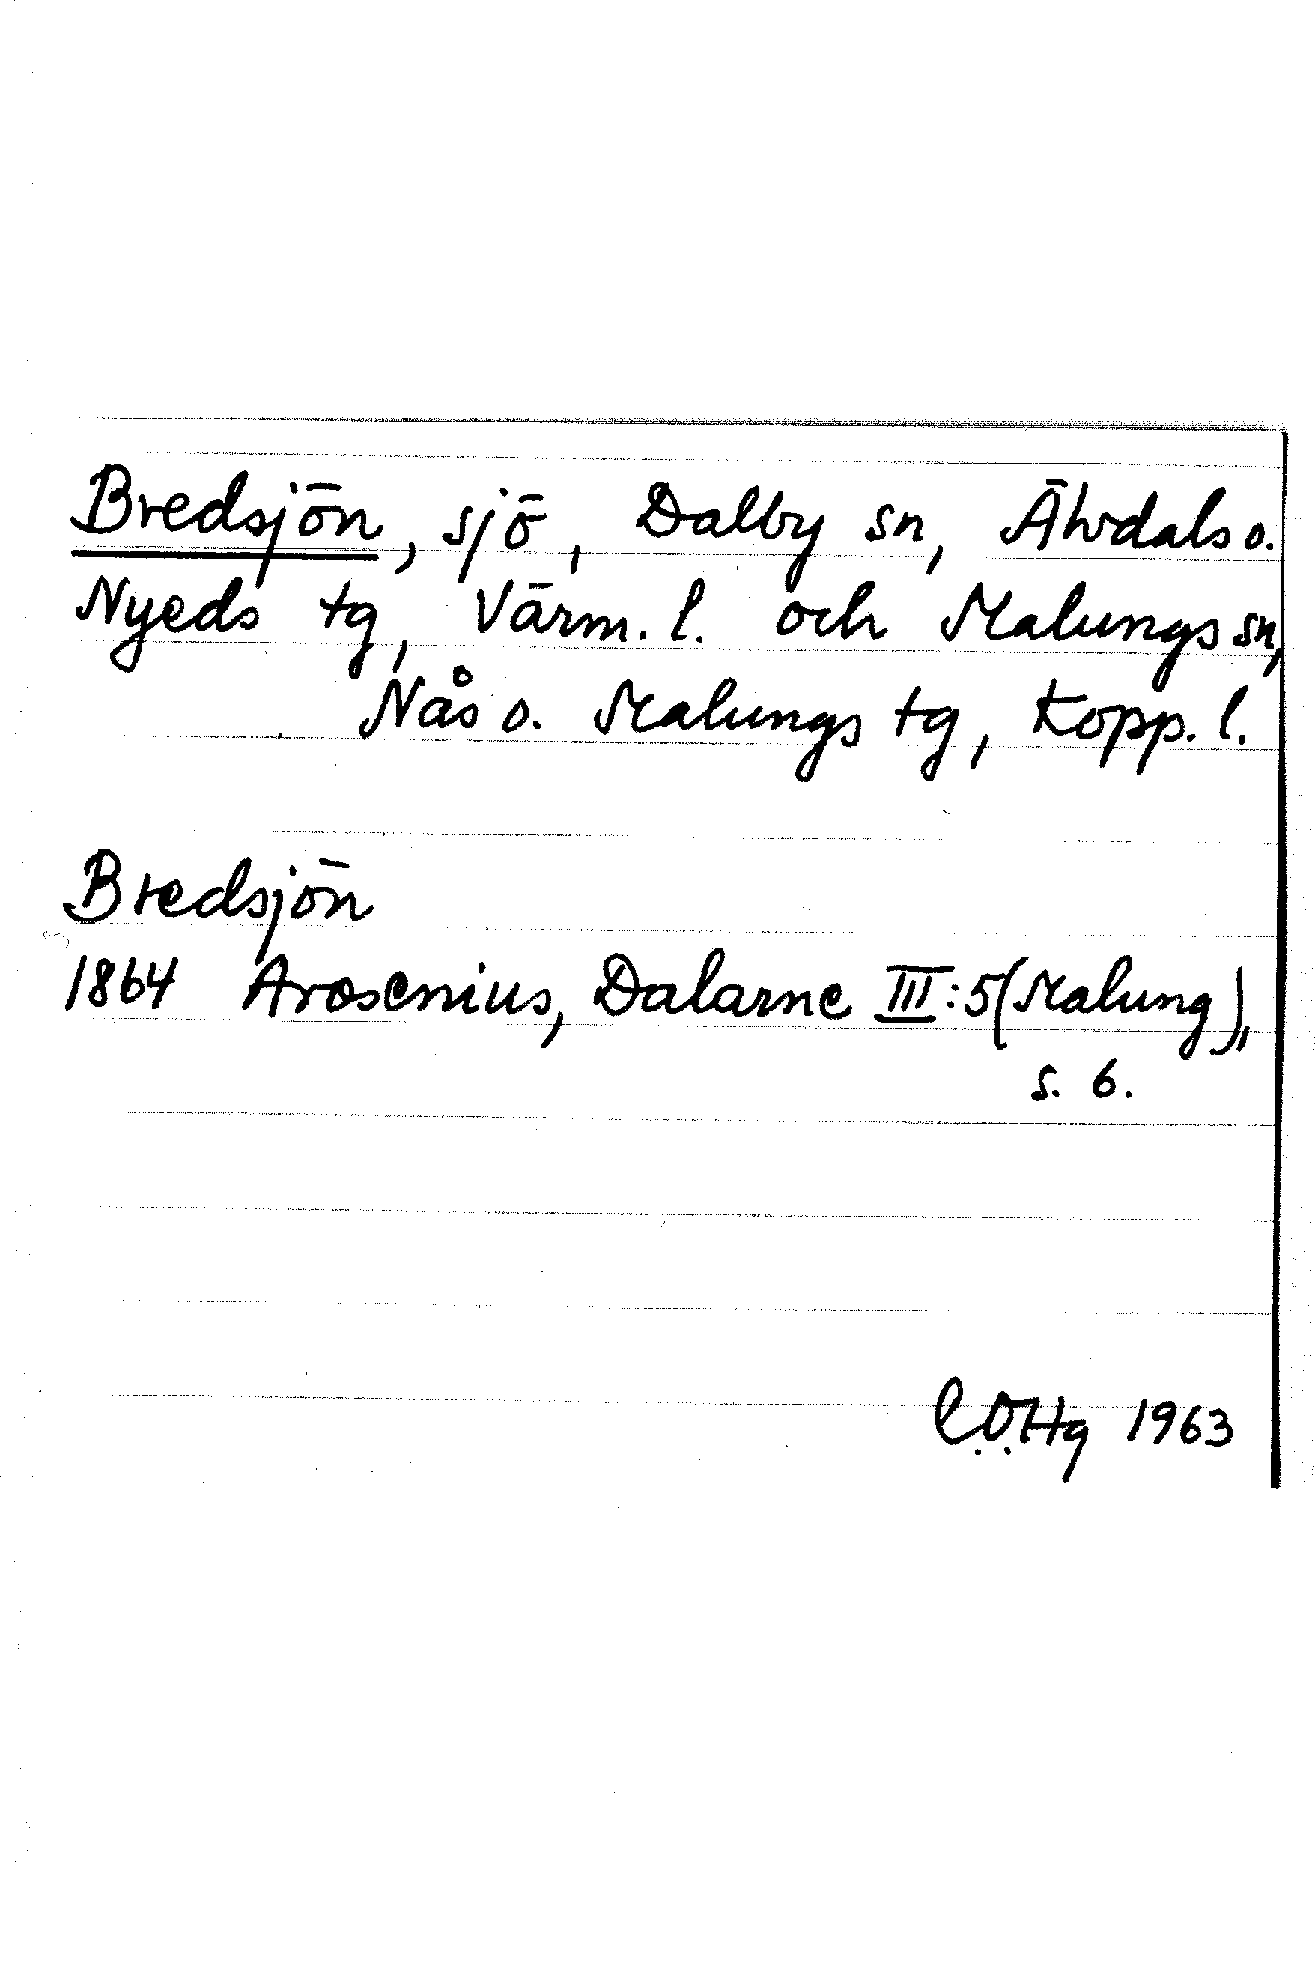 Bredsjön, sjö, Dalby sn, Älvdals o.
Nyeds tg, Värm. l. och Malungs sn,
Nås o. Malungs tg, Kopp. l.
Bredsjön
1864 Arosenius, Dalarne III:5 (Malung),
s. 6.
C.O.Hg 1963